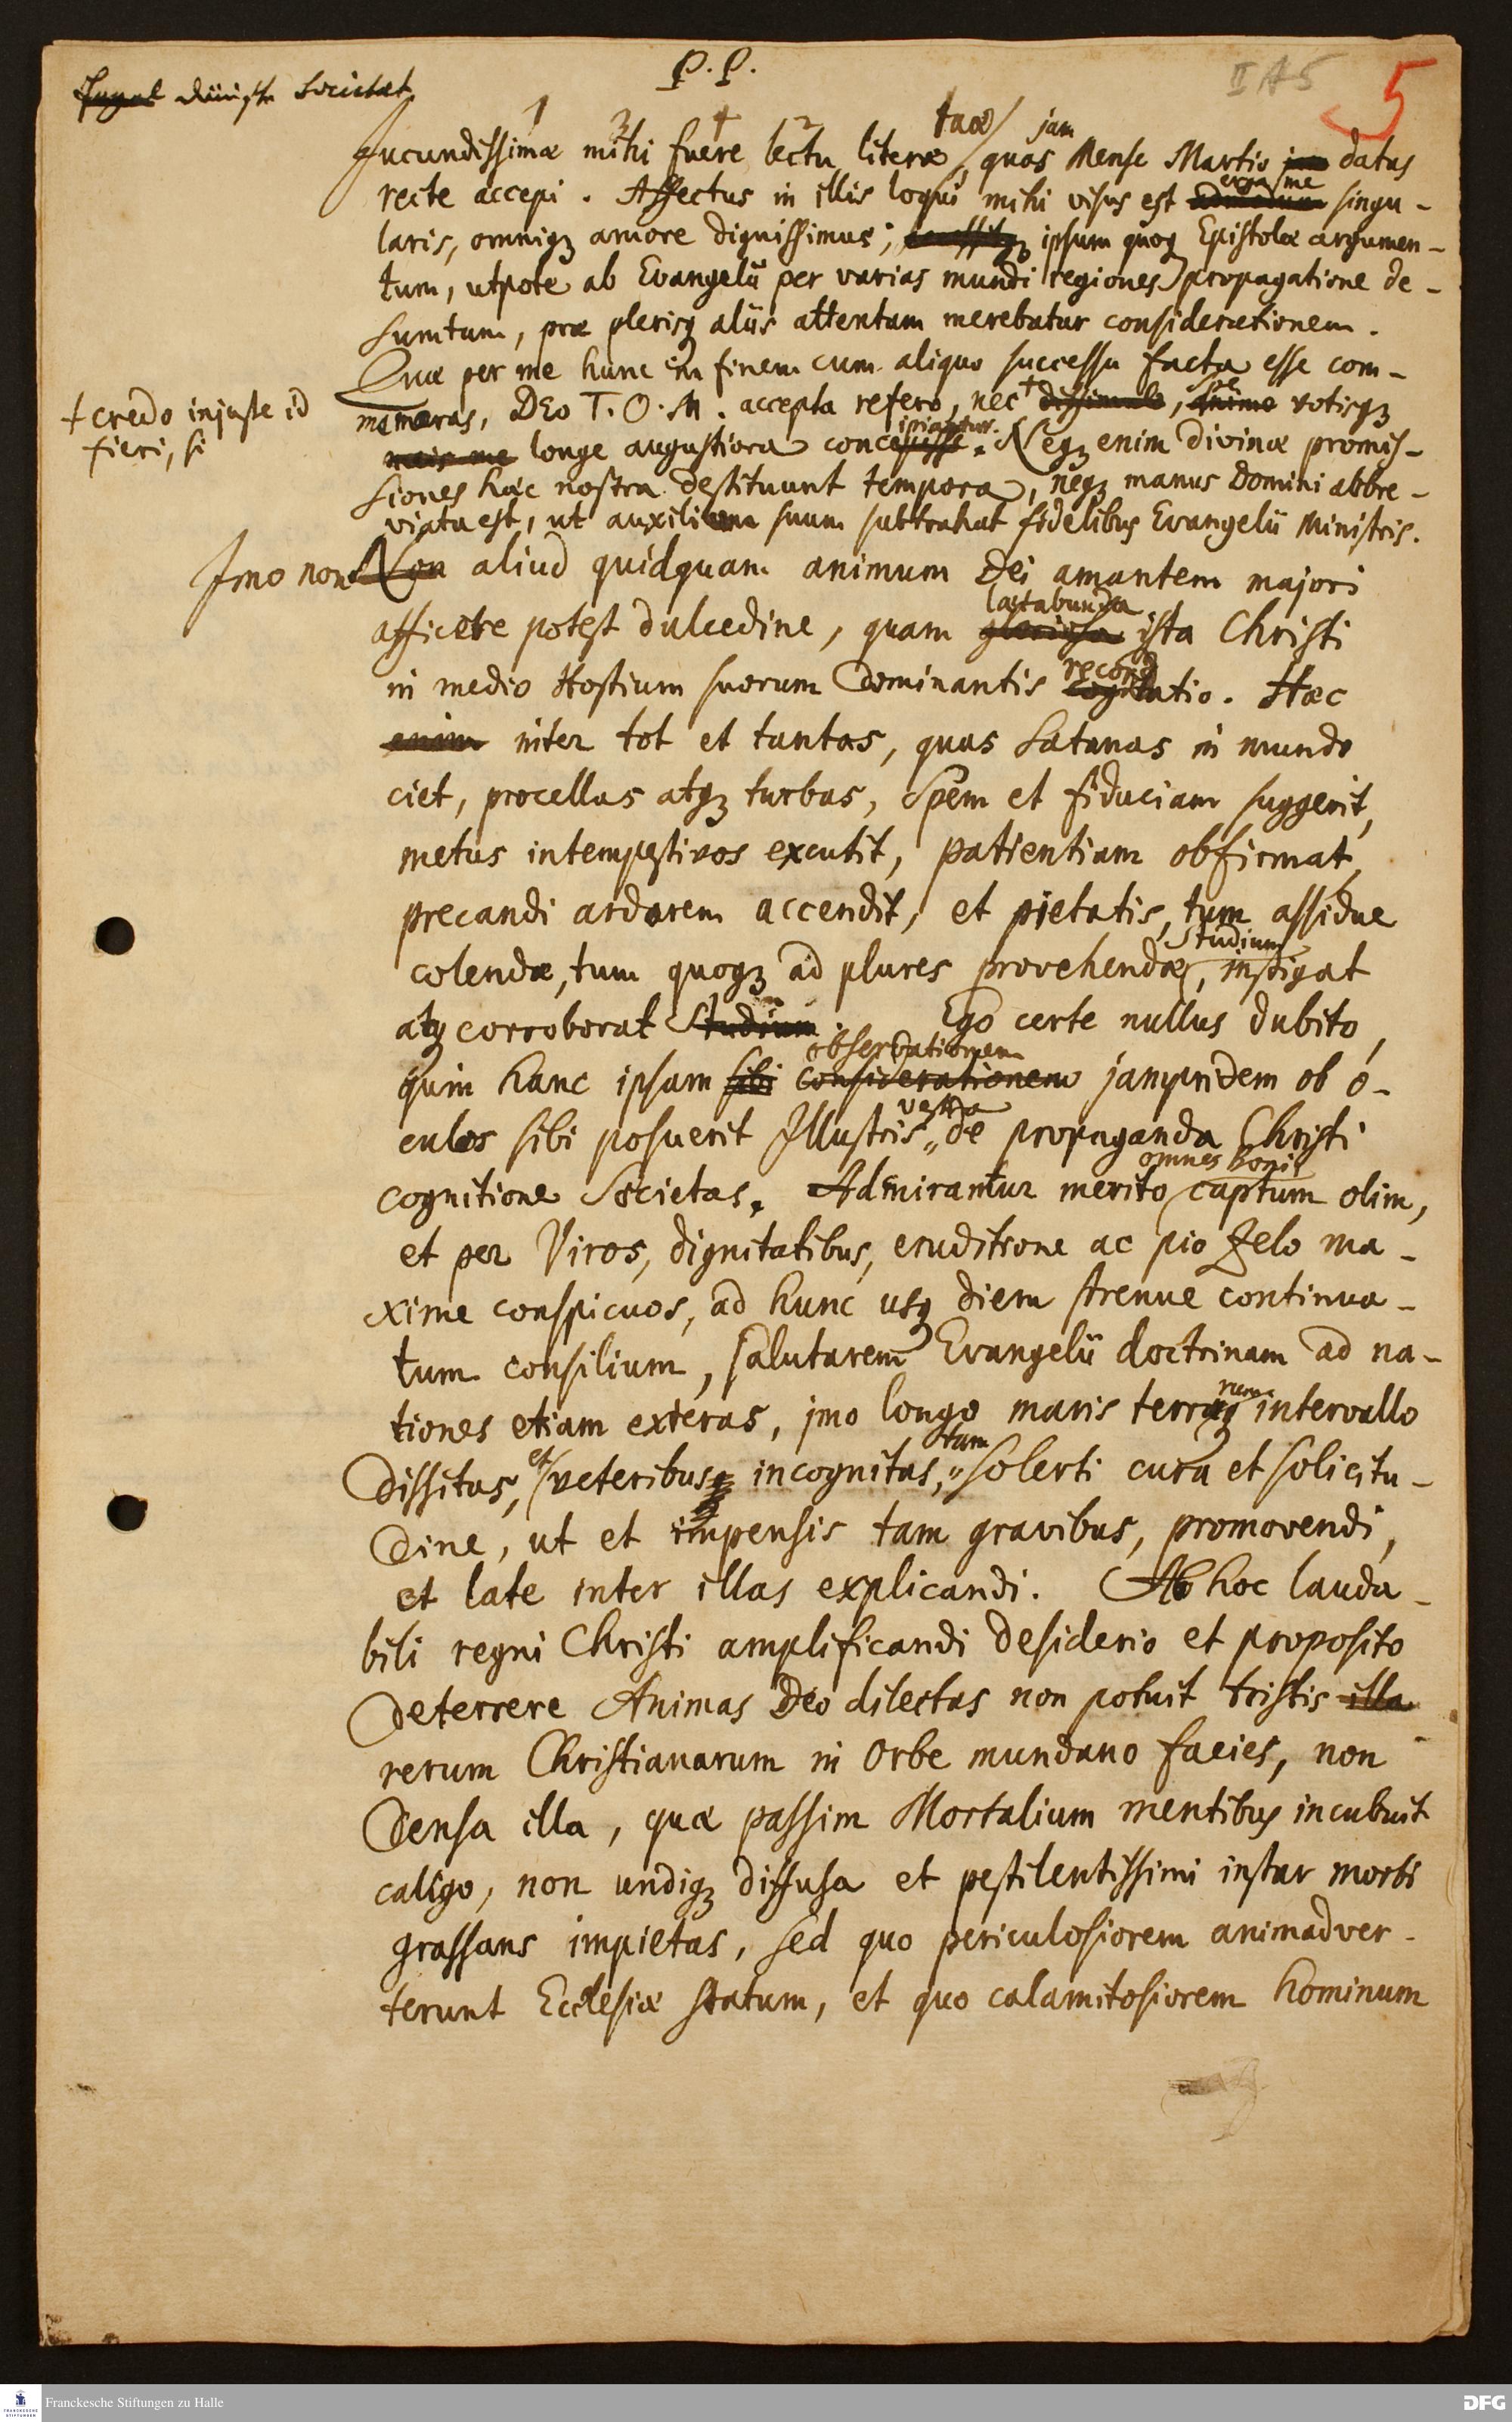 P. P.
II A 5
5
Societat
1 3 4 2 tuæ jam
Jucundissimæ mihi fuere lectu literæ, quas Mense Martio jam datas
erga me
recte accepi. Affectus in illis loqui mihi visus est admodum singu-
laris, omniq; amore dignissimus; ipsum quoq; Epistolæ argumen-
tum, utpote ab Evangelii per varias mundi regiones propagatione de-
sumtum, præ plerisq; aliis attentam merebatur considerationem.
Quæ per me hunc in finem cum aliquo successu facta esse com-
+ credo injuste id
fieri, si
spe
memoras, DEo T. O. M. accepta refero, nec + dissimulo, animo votisq;
cipiantur.
longe augustiora concepisse. Neq; enim divinæ promis-
siones hæc nostra destituunt tempora, neq; manus Domini abbre-
viata est, ut auxilium suum subtrahat fidelibus Evangelii Ministris.
Imo non Non aliud quidquam animum Dei amantem majori
lætabunda
afficere potest dulcedine, quam gloriosa ista Christi
recog
in medio Hostium suorum Dominantis cogitatio. Hæc
enim inter tot et tantas, quas Satanas in mundo
ciet, procellas atq; turbas, Spem et fiduciam suggerit,
metus intempestivos excutit, patientiam obfirmat,
precandi ardorem accendit, et pietatis, tum assidue
studium
colendæ, tum quoq; ad plures provehendæ, instigat
atq; corroborat Studium. Ego certe nullus dubito,
observationem
quin hanc ipsam sibi considerationem jampridem ob o-
vestra
culos sibi posuerit Illustris „ de propaganda Christi
omnes boni
cognitione Societas. Admirantur merito captum olim,
et per Viros, dignitatibus, eruditione ac pio Zelo ma-
xime conspicuos, ad hunc usq; diem strenue continua-
tum consilium, salutarem Evangelii doctrinam ad na-
rum
tiones etiam exteras, jmo longo maris terraq; intervallo
et tam
dissitas, veteribusq; incognitas, „ solerti cura et solicitu-
dine, ut et impensis tam gravibus, promovendi,
et late inter illas explicandi. Ab hoc lauda-
bili regni Christi amplificandi desiderio et proposito
deterrere Animas Deo dilectas non potuit tristis illa
rerum Christianarum in Orbe mundano facies, non
densa illa, quæ passim Mortalium mentibus incubuit
caligo, non undiq; diffusa et pestilentissimi instar morbi
grassans impietas, sed quo periculosiorem animadver-
terunt Ecclesiæ statum, et quo calamitosiorem hominum
Franckesche Stiftungen zu Halle
DFG